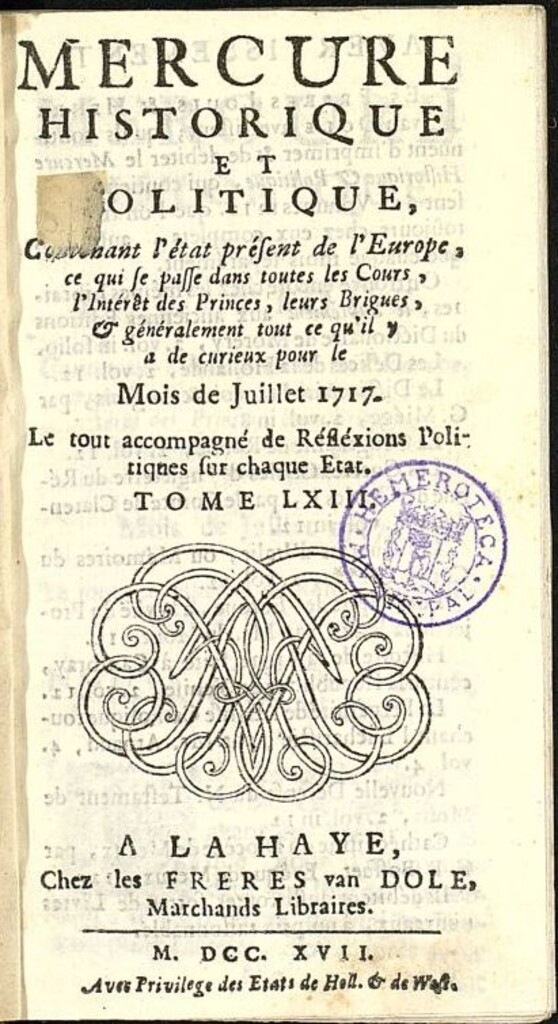 MERCURE
HISTORIQUE
ET
OLITIQUE,
Contenant l'état présent de l'Europe,
ce qui se passe dans toutes les Cours,
l'Intérêt des Princes, leurs Brigues,
& généralement tout ce qu'il y
a de curieux pour le
Mois de Juillet 1717.
Le tout accompagné de Réfléxions Poli-
tiques sur chaque Etat.
TOME LXIII.
HEMEROTECA
A LA HAYE,
Chez les FRERES van DOLE,
Marchands Libraires.
M. DCC. XVII.
Avec Privilege des Etats de Holl. & de West.